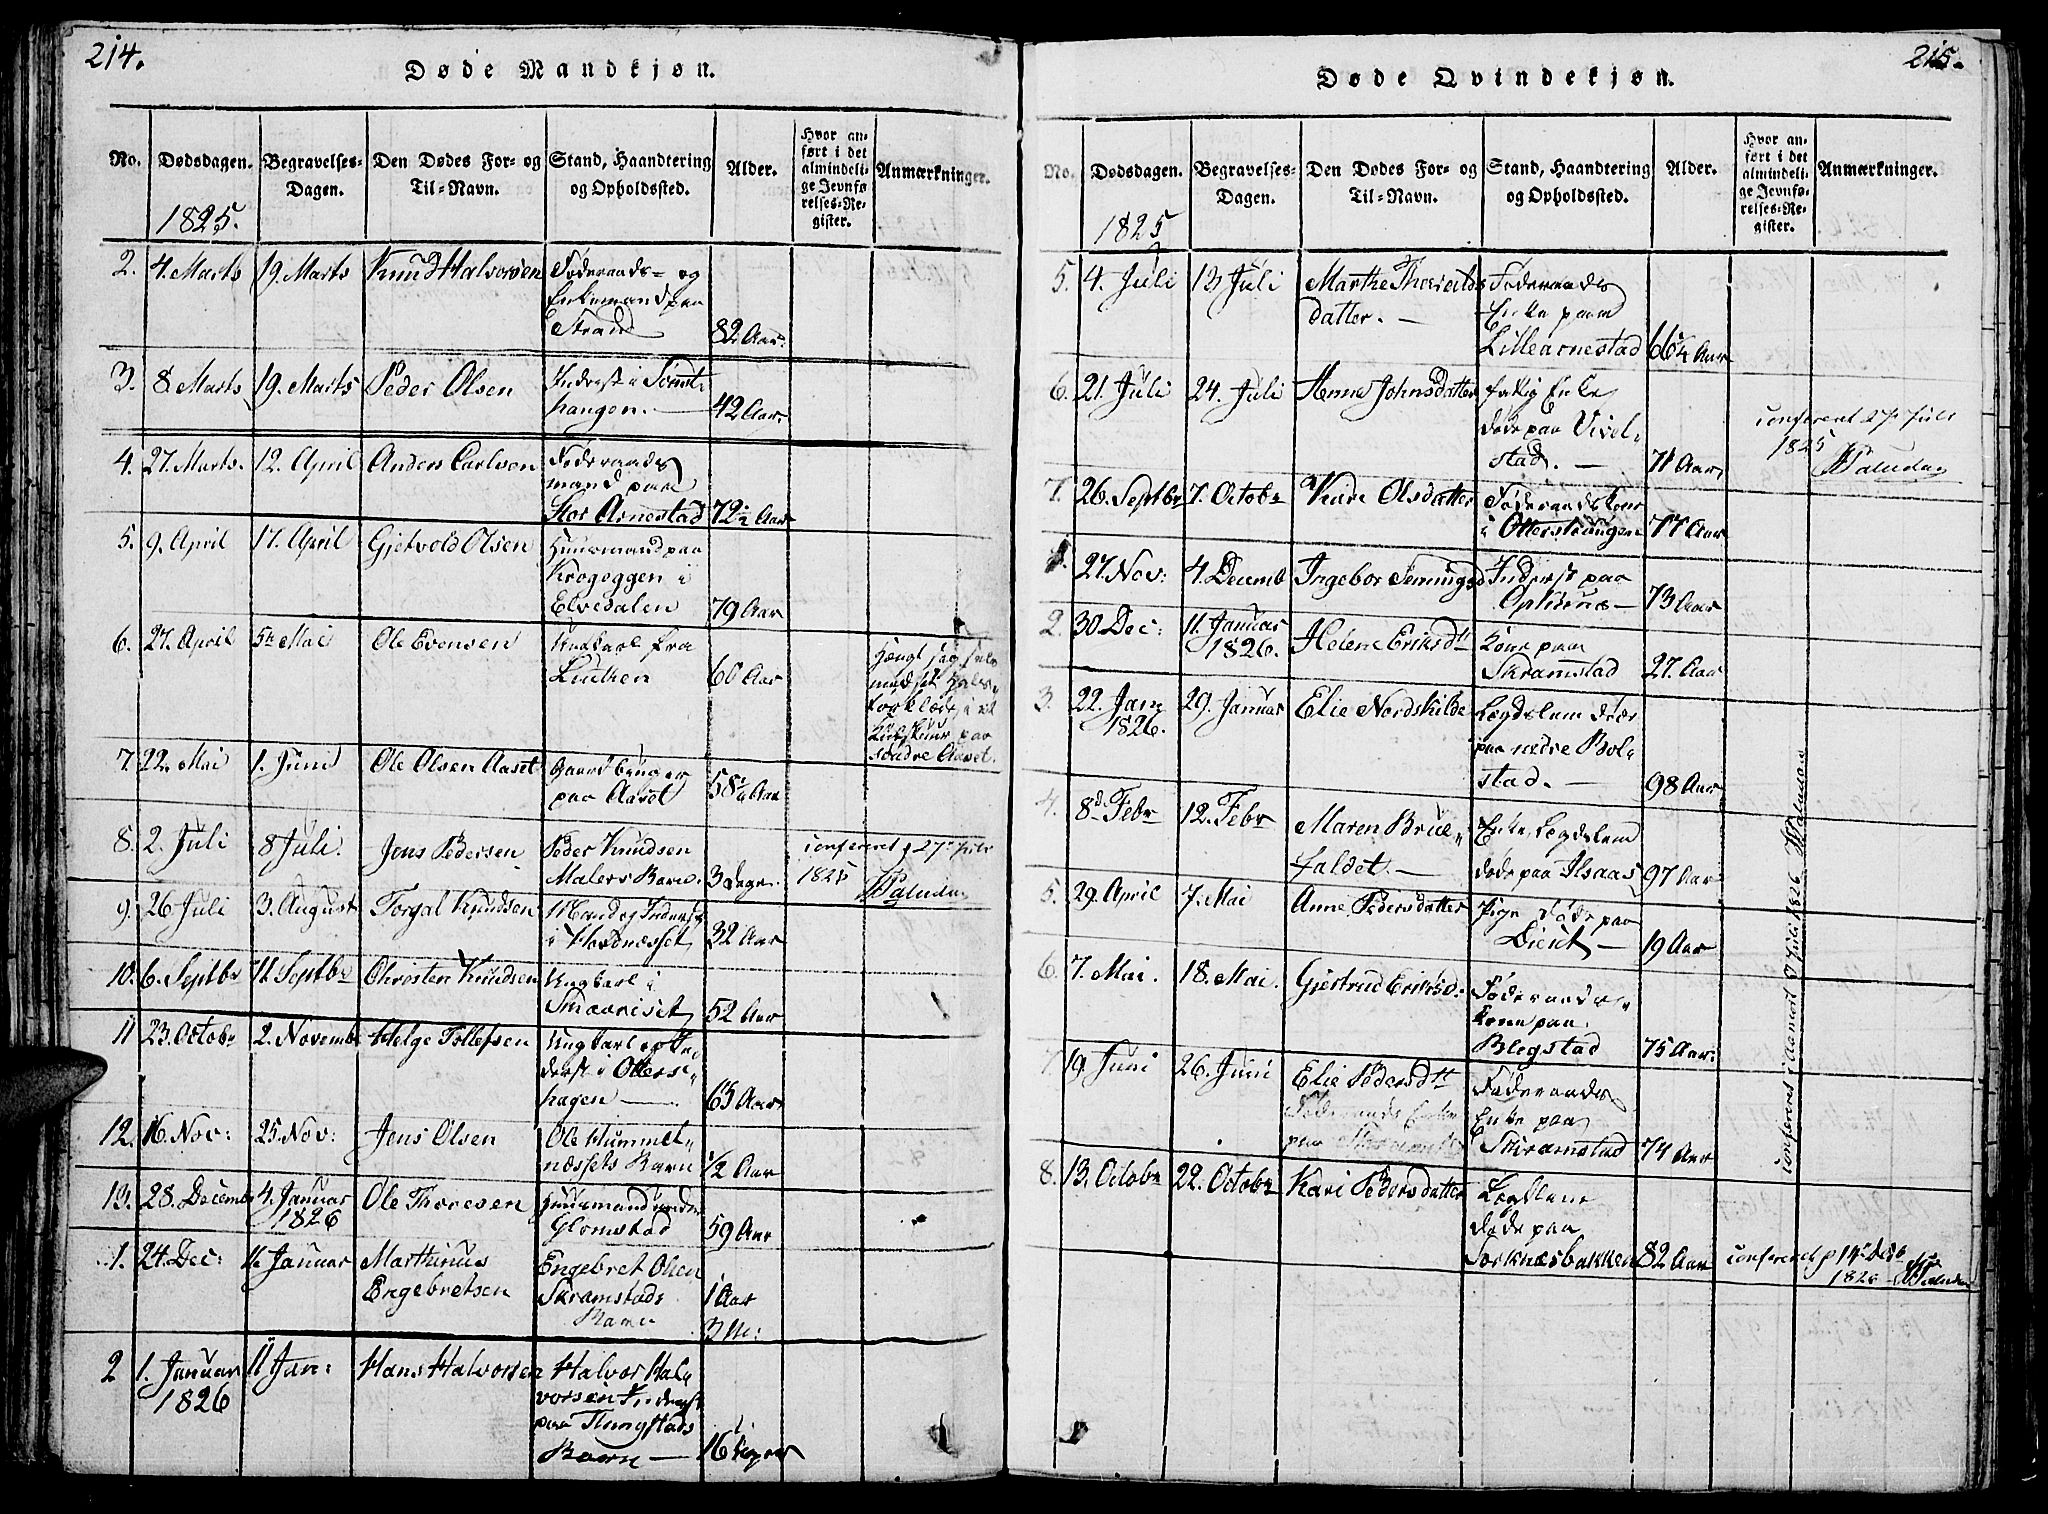 214.
Døde Mandkjøn.
No.
Dødsdagen.
Begravelses-
Dagen.
Den Dødes For- og
Til-Navn.
Stand, Haandtering
og Opholdssted.
Alder.
Hvor an-
ført i det
almindeli-
ge Jevnfø
relses-Re-
gister.
Anmærkninger.
1825.
2. 4. Marts 19. Marts Knud Halvorsen Føderaads- og
Enkemand paa
Strand 82 Aar.
3. 8 Marts 19. Marts Peder Olsen Inderst i
hangen. 42 Aar.
4. 27. Marts. 12. April Anders Carlsen Føderaads
mand paa
Stor Arnestad 72½ Aar
5. 9. April 17. April Gjetvold Olsen Huusmand paa
Krogeggen i
Elvedalen 79 Aar
6. 27. April 5te Mai Ole Evensen Ungkarl fra
Lutken 60 Aar
Hængt sig selv
med sit Hals-
torklæde i et
paa
søndre Aaset.
7. 22. Mai 1. Juni Ole Olsen Aaset Gaardbruger
paa Aaset 58¼ Aar
8. 2. Juli 8 Juli. Jens Pedersen Peder Knudsen
Malers Barn. 3 Dage.
confereret p 27de Juli
1825
Paludan
9. 26 Juli 3. August Torgal Knudsen Mand og Inderst
i Hardnæsset 32 Aar
10. 6. Septbr 11. Septbr Christen Knudsen Ungkarl i
52 Aar
11 23. Octobr 2. Novemb Helge Tollefsen Ungkarl og In-
derst i Otters-
hagen 65 Aar
12. 16. Nov: 25. Nov: Jens Olsen Ole Hummel-
næssets Barn ½ Aar
13. 28. Decemb 4. Januar
1826 Ole Thoresen Huusmand under
Glomstad 59 Aar
1. 24. Dec: 11. Januar Marthinus
Engebretsen Engebret Olsen
Skramstads
Barn 1 Aar
3 M:
2 1. Januar
1826 11 Jan: Hans Halvorsen Halvor Hal-
vorsen Inderst
paa
Barn 16 Uger
215.
Døde Qvindekjøn.
No.
Dødsdagen.
Begravelses-
Dagen.
Den Dødes For- og
Til-Navn.
Stand, Haandtering
og Opholdssted.
Alder.
Hvor an-
ført i det
almindeli-
ge Jevnfø-
relses-Re-
gister.
Anmærkninger.
1825
5. 4. Juli 13 Juli Marthe Thorkilds
datter. Føderaads
Enke paa
Lillearnestad 66¼ Aar
6. 21. Juli 24. Juli Anne Johnsdatter fattig Enke
døde paa Vivel-
stad. 71 Aar
confereret 27de Juli
1825
Paludan
7. 26. Septbr 7. Octobr Kari Olsdatter Føderaadskone
i Otterstrangen 77 Aar
1. 27. Nov: 4. Decemb Ingebor Semingsd Inderst paa
Ophuus 73 Aar
2. 30 Dec: 11. Januar
1826. Helene Eriksdtt Kone paa
Skramstad 27. Aar
3. 22. Jan
1826. 29. Januar Elie Nordskilde Lægdslem døde
paa nedre Bol-
stad. 98 Aar
4. 8de Febr 12. Febr Maren Brue-
faldet. Enke, Lægdslem
døde paa Ilsaas 97 Aar
5. 29. April 7. Mai Anne Pedersdatter Pige døde paa
19 Aar
6. 7. Mai. 18. Mai. Gjertrud Eriksd. Føderaads-
Kone paa
Blegstad 75 Aar.
7. 19 Juni 26. Juni Elie Pedersdtt
Føderaads Enke
paa Skramstad
Føderaads
Enke paa
Skramstad 74 Aar
8. 13. Octobr 22. Octobr Kari Pedersdatter Lægdlem
døde paa
Sorknæsbakken 82 Aar
confereret p 14de
1826 Paludan
confereret i Aamot 9 Juli 1826 Paludan